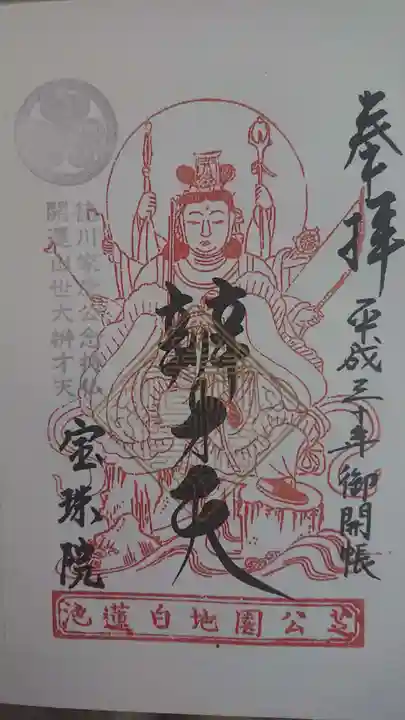 奉拝
平成三十年御開帳
辨才天
徳川家康公念持仏
開運出世大辨才天
宝珠院
芝公園地白蓮池